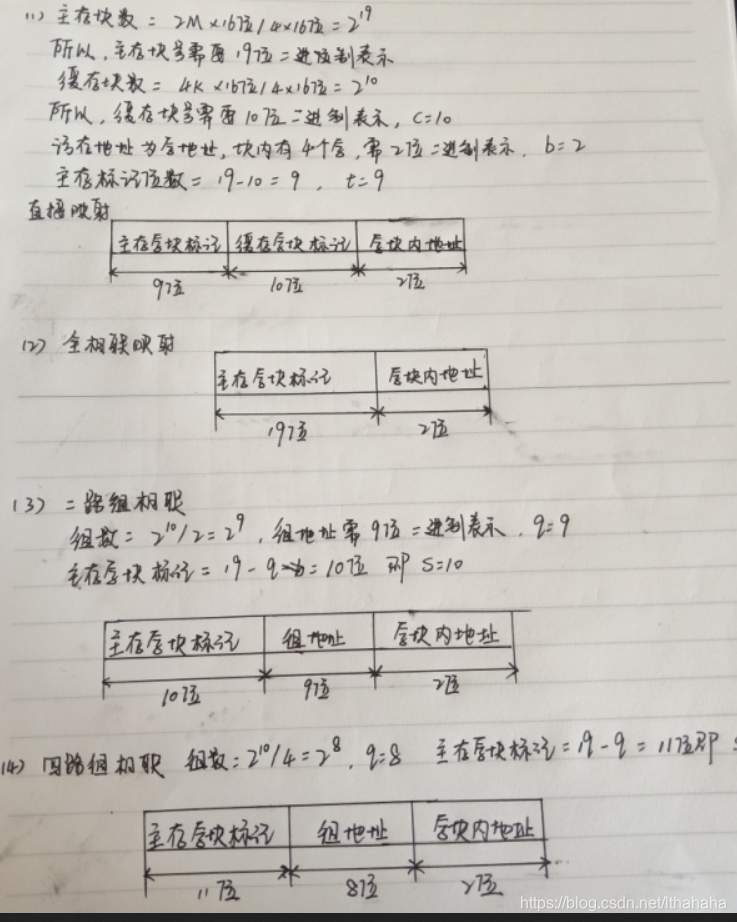 (1) 主存块数 = 2M×16位/4×16位 = 2^19
所以, 主存块号需要19位二进制表示
缓存块数 = 4K×16位/4×16位 = 2^10
所以, 缓存块号需要10位二进制表示, C=10
访存地址为字地址, 块内有4个字, 需2位二进制表示. b=2
主存标记位数 = 19-10 = 9 , t=9
直接映射
主存字块标记 缓存字块标记 字块内地址
9位 10位 2位
(2) 全相联映射
主存字块标记 字块内地址
19位 2位
(3) 二路组相联
组数 = 2^10/2 = 2^9 , 组地址需9位二进制表示. q=9
主存字块标记 = 19 - q = 10位 即 S=10
主存字块标记 组地址 字块内地址
10位 9位 2位
(4) 四路组相联 组数: 2^10/4 = 2^8 , q=8 主存字块标记 = 19 - q = 11位即
主存字块标记 组地址 字块内地址
11位 8位 2位
https://blog.csdn.net/lthahaha